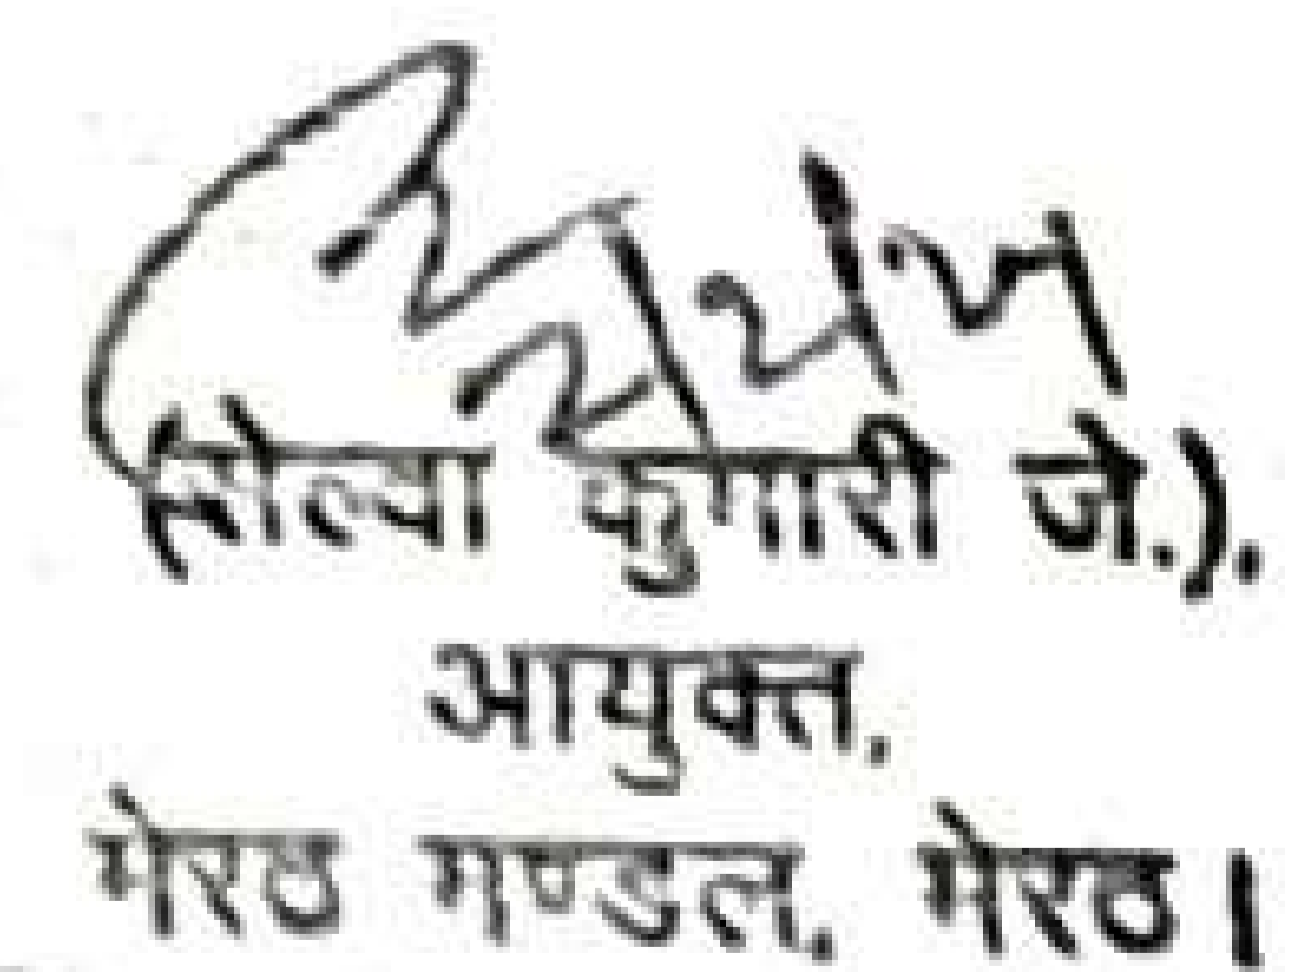 (सेल्वा कुमारी जे.).
आयुक्त.
मेरठ मण्डल. मेरठ।